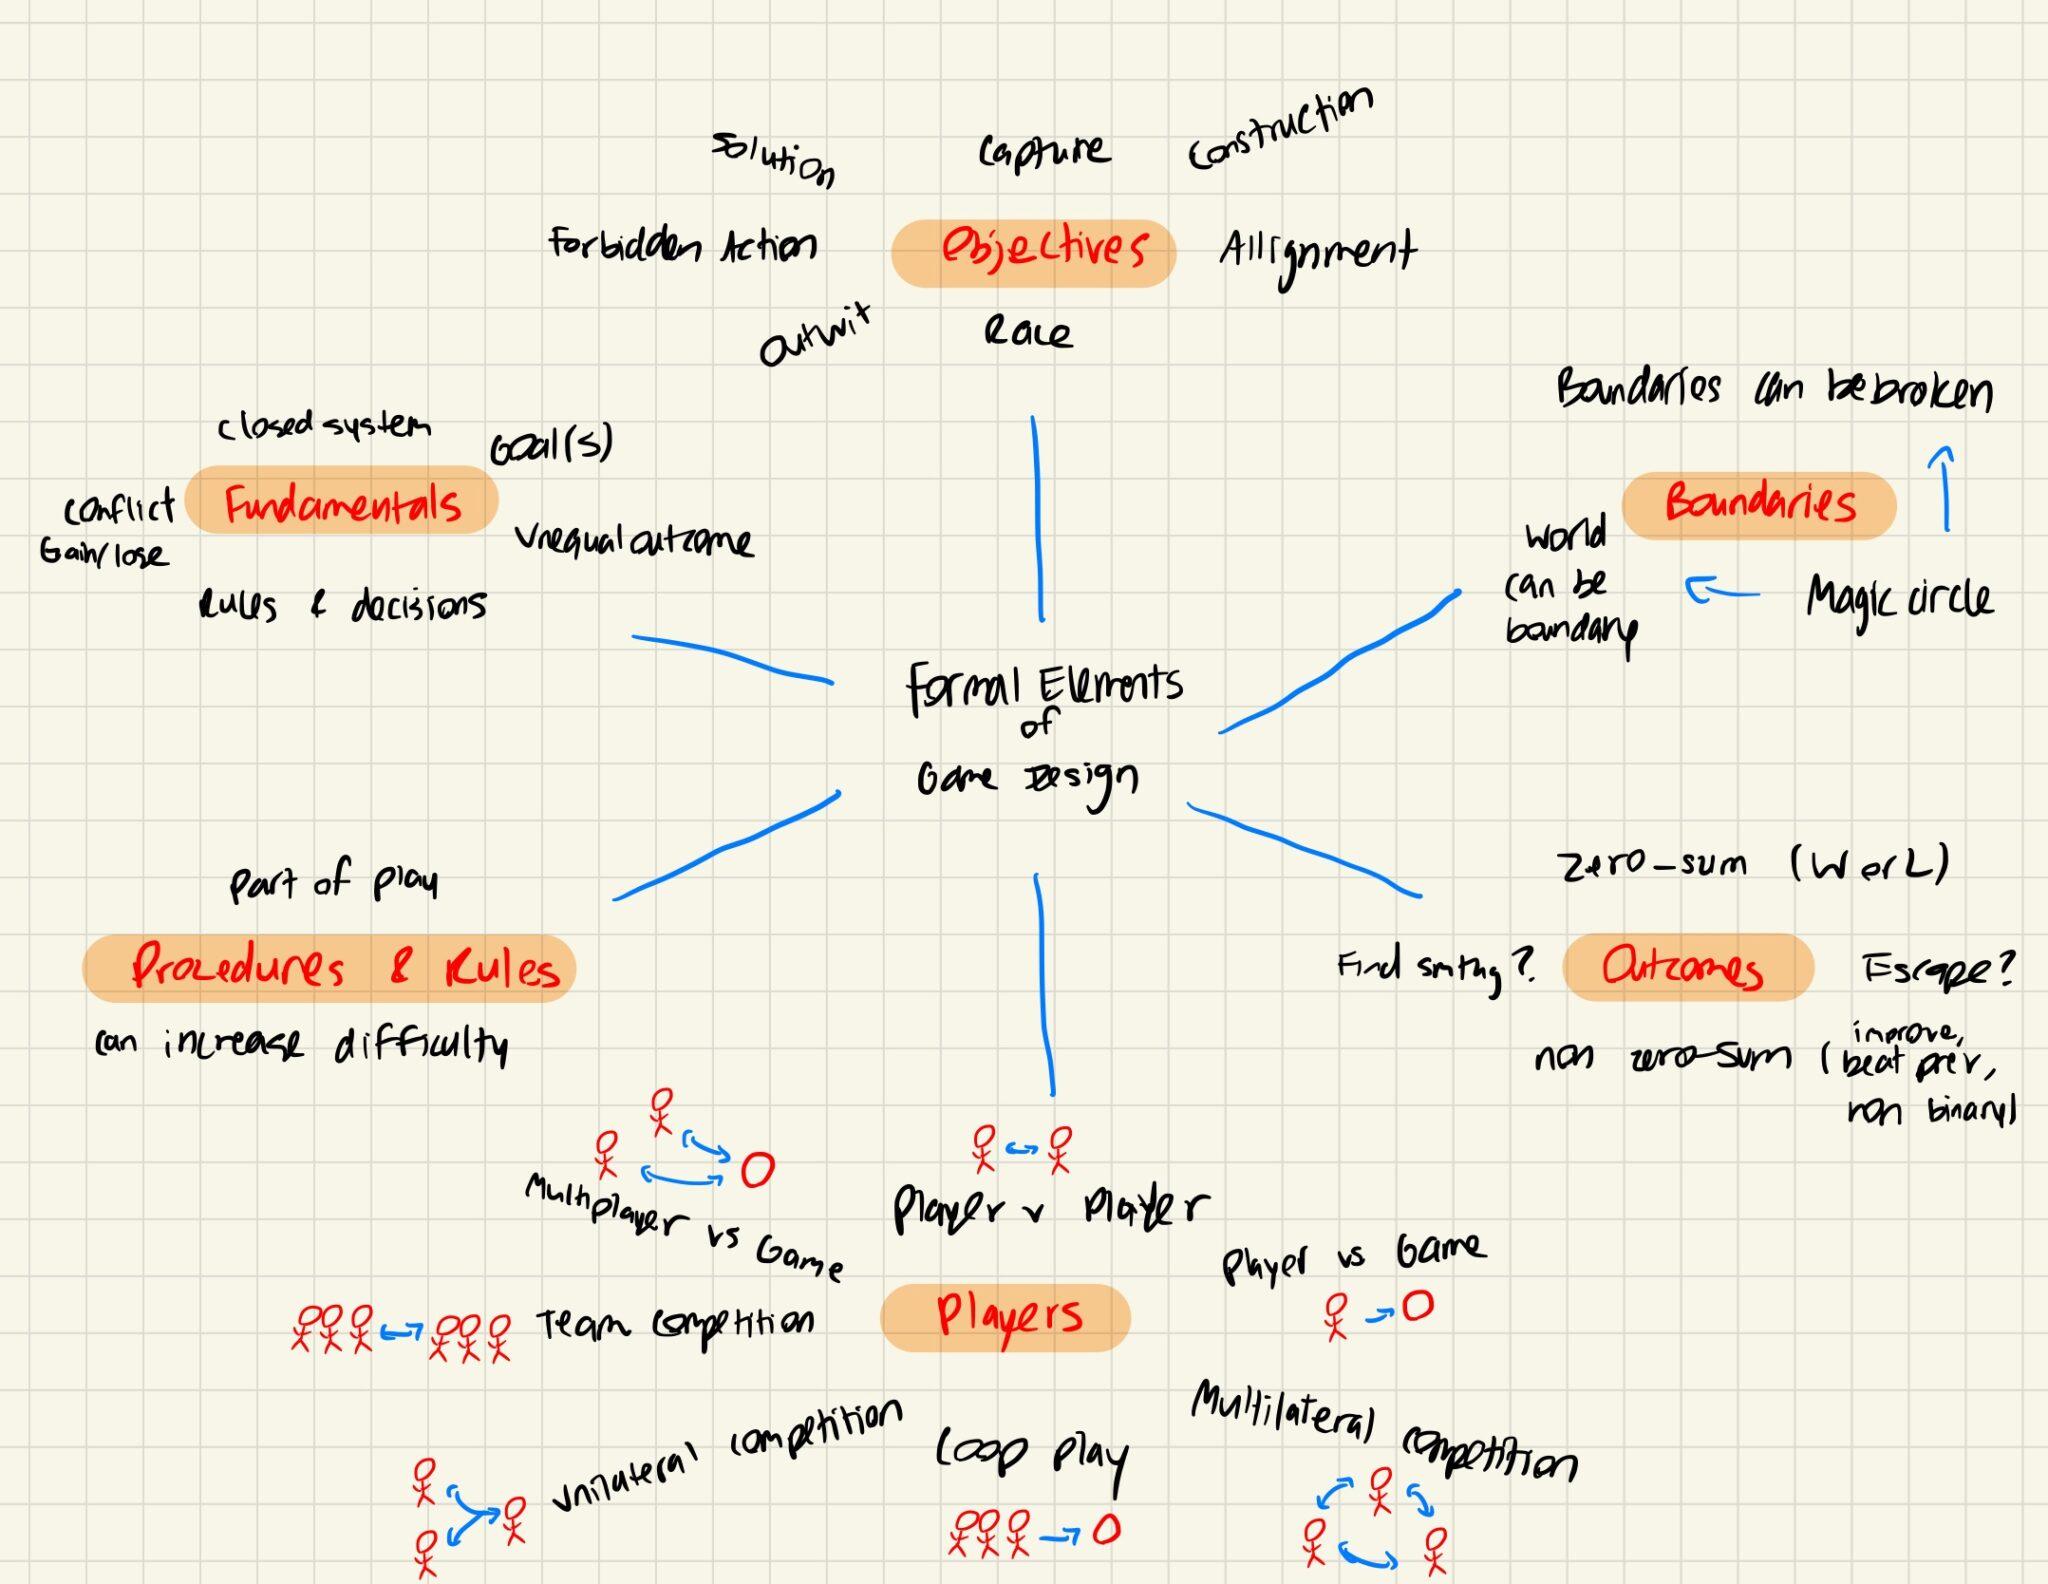 Solution
Capture
Construction
Forbidden Action
Objectives
Allignment
Outwit
Race
Closed system
Goal(s)
Conflict
Fundamentals
Gain/lose
Unequal outcome
Rules & decisions
Boundaries can be broken
Boundaries
World
can be
boundary
Magic circle
Formal Elements
of
Game Design
Part of play
Procedures & Rules
can increase difficulty
Zero-sum (W or L)
Find smthg?
Outcomes
Escape?
non zero-sum (improve,
beat prev,
non binary)
Multiplayer vs Game
Player v Player
Player vs Game
Team competition
Players
Unilateral competition
Coop play
Multilateral competition